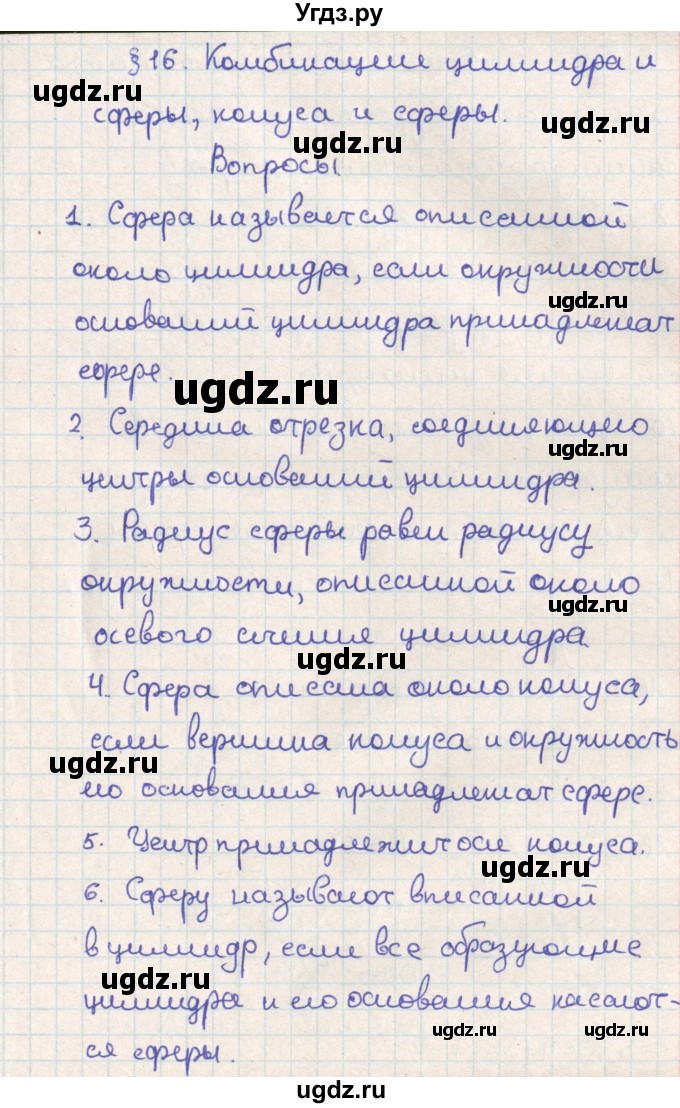 Угдз.ру
§16. Комбинации цилиндра и
ugdz.ru
сферы, конуса и сферы.
ugdz.ru
Вопросы
ugdz.ru
1. Сфера называется описанной
около цилиндра, если окружности
ugdz.ru
оснований цилиндра принадлежат
сфере.
ugdz.ru
2. Середина отрезка, соединяющего
ugdz.ru
центры оснований цилиндра.
3. Радиус сферы равен радиусу
окружности, описанной около
ugdz.ru
осевого сечения цилиндра
ugdz.ru
4. Сфера описана около конуса,
если вершина конуса и окружность
ugdz.ru
его основания принадлежат сфере.
5. Центр принадлежит оси конуса.
ugdz.ru
6. Сферу называют вписанной
в цилиндр, если все образующие
ugdz.ru
цилиндра и его основания касают-
ugdz.ru
ugdz.ru
ся сферы.
ugdz.ru